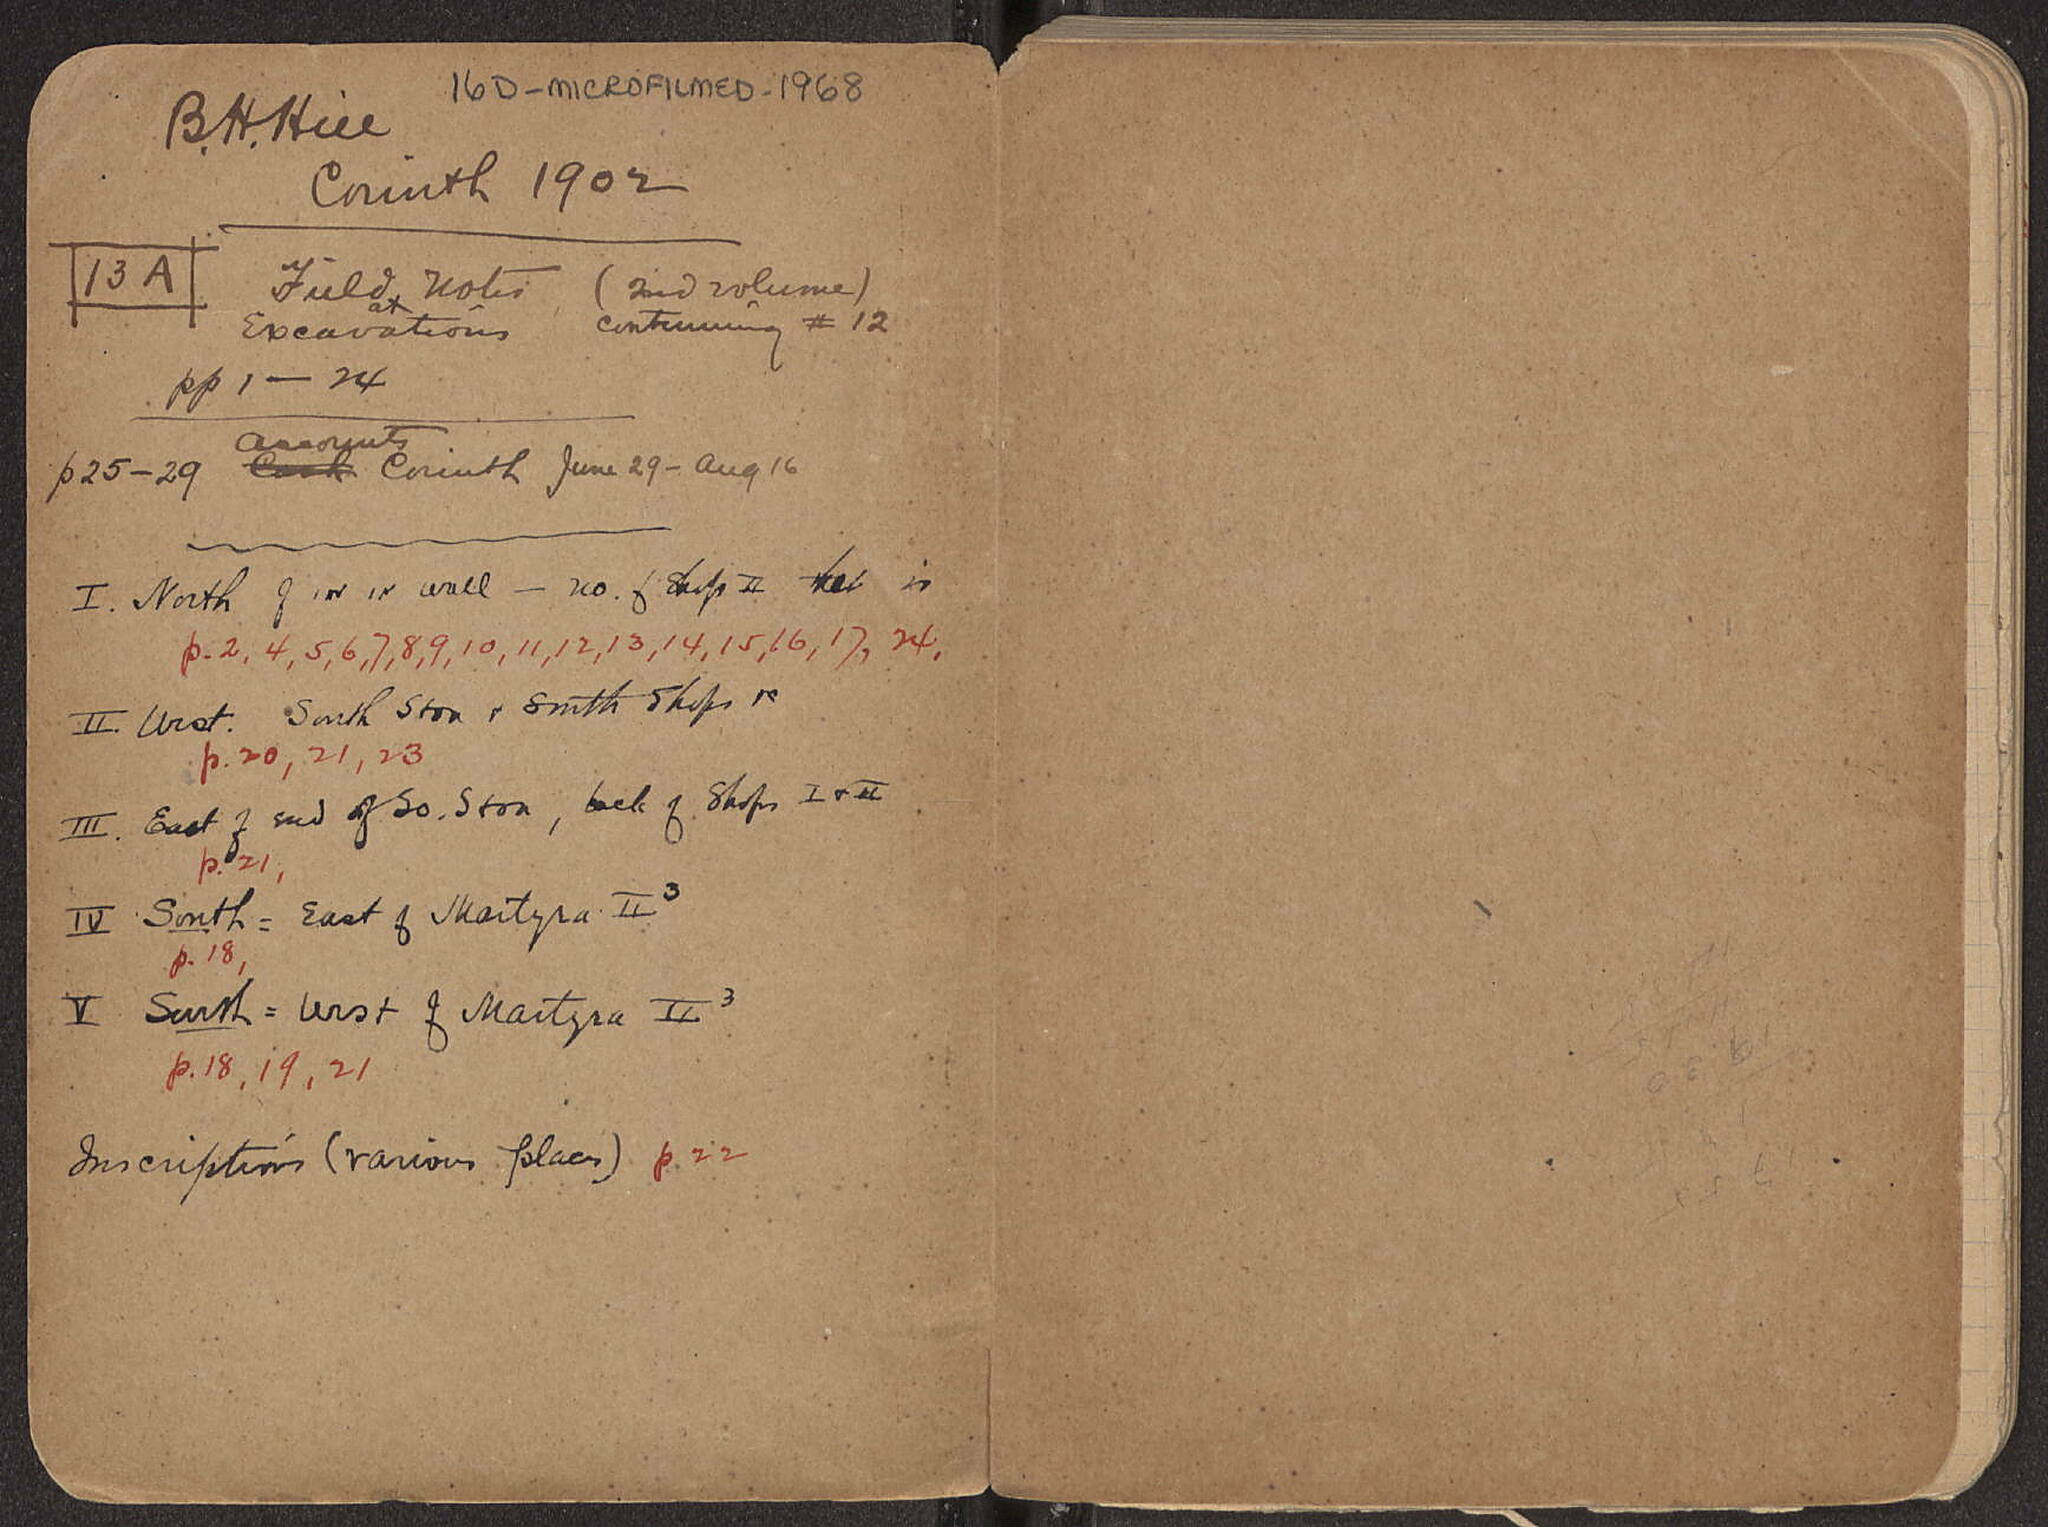 16D-MICROFILMED-1968
B.H.Hill
Corinth 1902
13 A
Field Notes (2nd volume)
at
Excavations continuing # 12
pp 1 — 24
accounts
p25-29 Cash Corinth June 29- Aug 16
I. North of wall — no. of Shop II is
p. 2, 4, 5, 6, 7, 8, 9, 10, 11, 12, 13, 14, 15, 16, 17, 24,
II. West. South Stoa + South Shops
p. 20, 21, 23
III. East of end of So. Stoa, back of Shops I + II
p. 21,
IV South = East of Martyra II 3
p. 18,
V South = West of Martyra II 3
p. 18, 19, 21
Inscriptions (various places) p 22